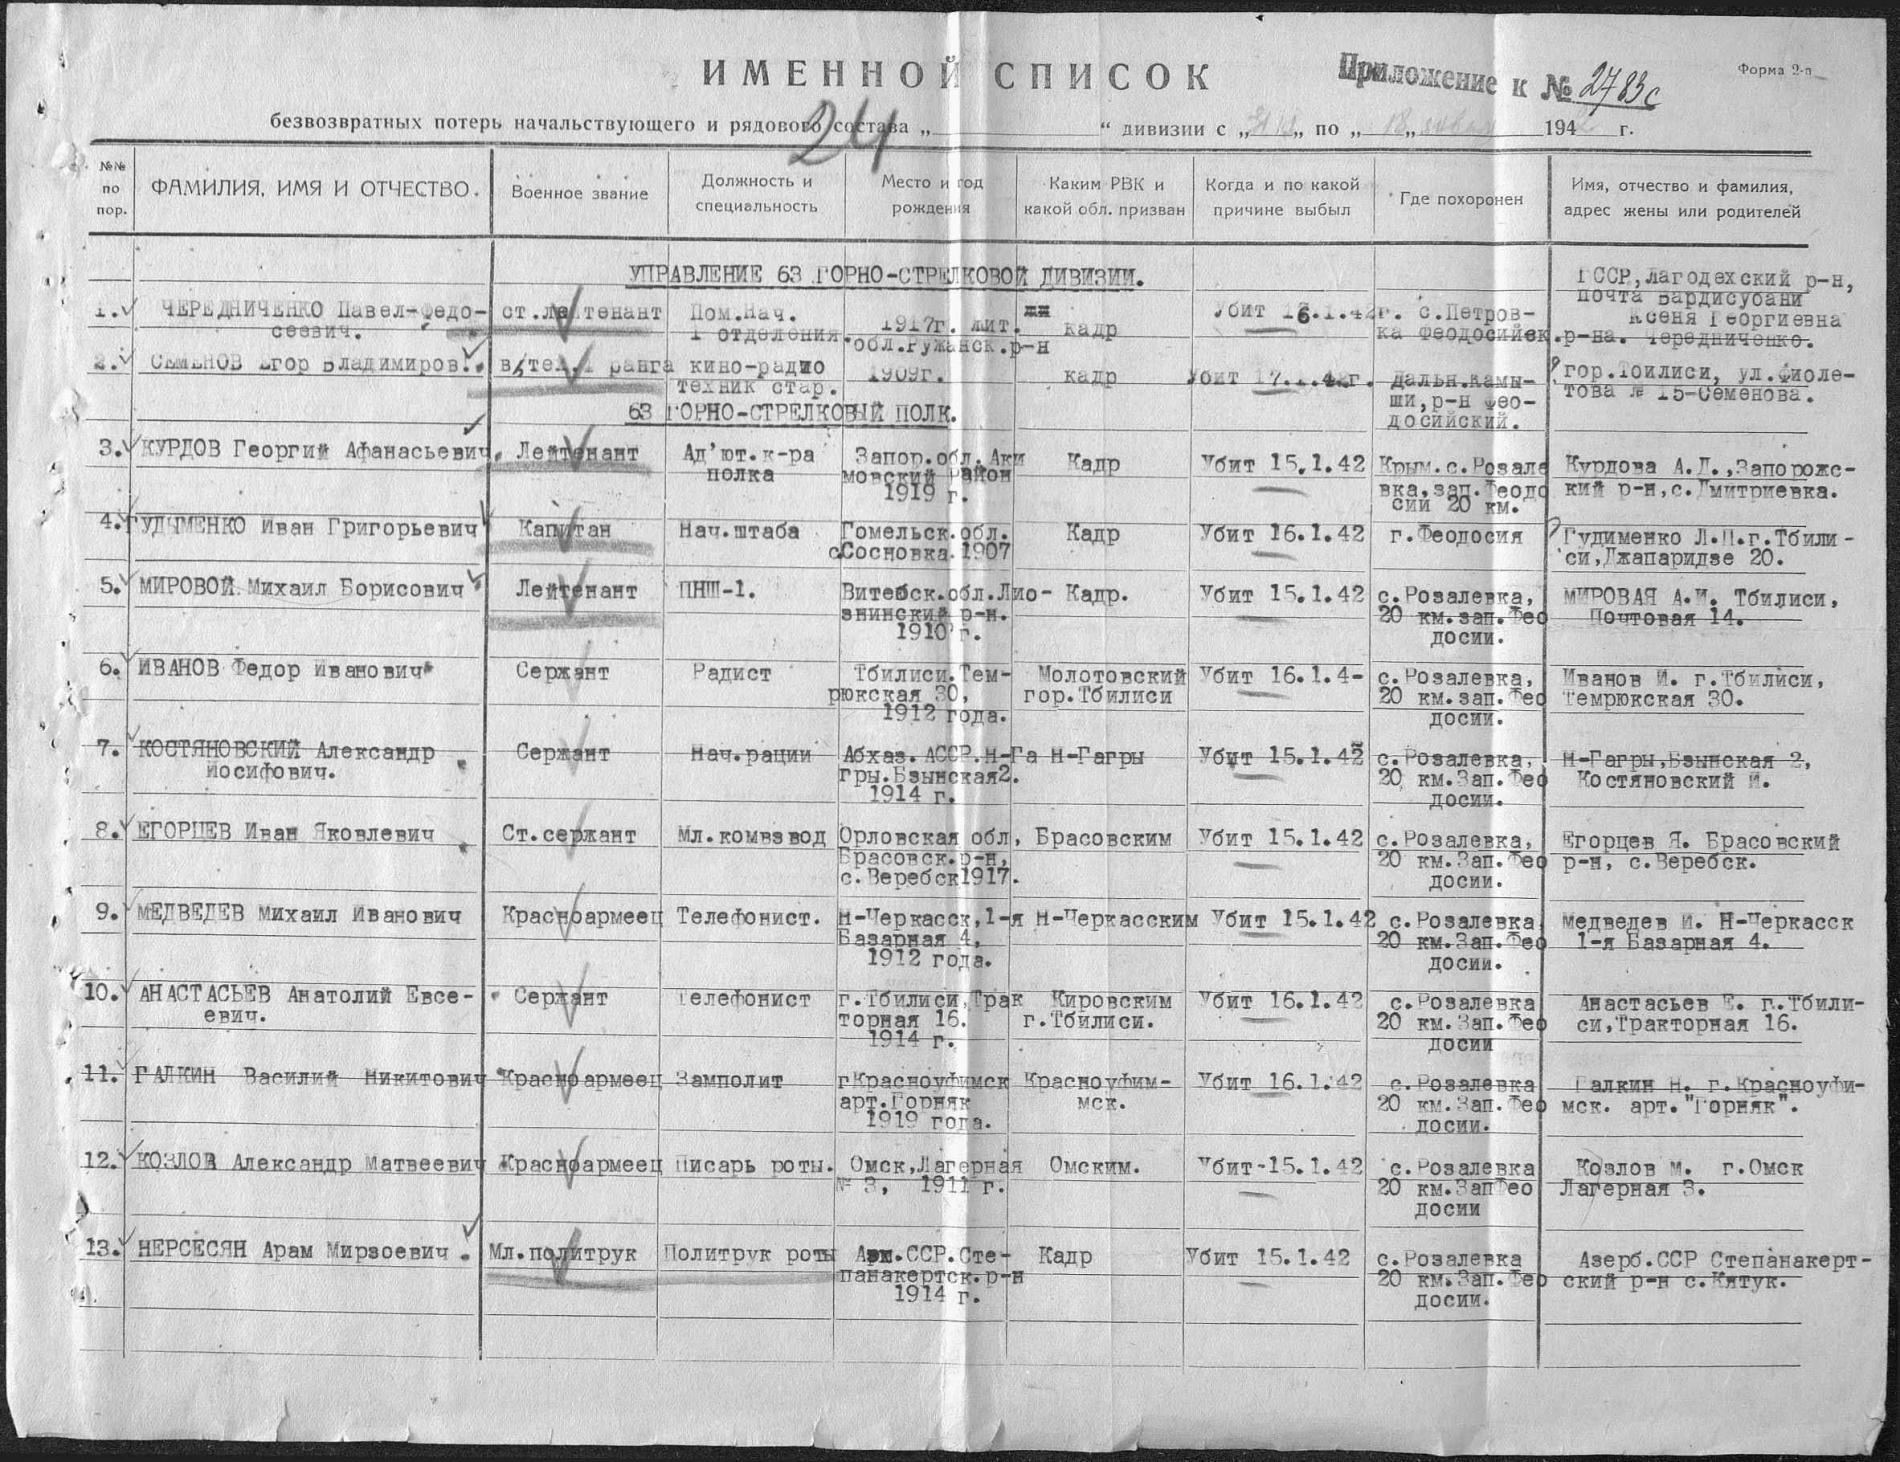 ИМЕННОЙ СПИСОК
Приложение к № 2783с
Форма 2-п
безвозвратных потерь начальствующего и рядового состава „ “ дивизии с „ „ по „ 18 „ 194 г.
24
№№ по пор.
ФАМИЛИЯ, ИМЯ И ОТЧЕСТВО.
Военное звание
Должность и специальность
Место и год рождения
Каким РВК и какой обл. призван
Когда и по какой причине выбыл
Где похоронен
Имя, отчество и фамилия, адрес жены или родителей
УПРАВЛЕНИЕ 63 ГОРНО-СТРЕЛКОВОЙ ДИВИЗИИ.
ГССР,Лагодехский р-н,
почта Вардисубани
1. ЧЕРЕДНИЧЕНКО Павел-Федо- ст.лейтенант Пом.Нач. 1917г. жит. кадр Убит 16.1.42г. с.Петров- Ксеня Георгиевна
сеевич. 1 отделения. обл.Ружанск.р-н ка Феодосийск.р-на. Чередниченко.
2. СЕМЕНОВ Егор Владимиров. в/тех.1 ранга кино-радио 1909г. кадр Убит 17.1.42г. Дальн.Камы- гор.Тбилиси, ул.Фиоле-
техник стар. ши,р-н Фео- това № 15-Семенова.
63 ГОРНО-СТРЕЛКОВЫЙ ПОЛК. досийский.
3. КУРДОВ Георгий Афанасьевич. Лейтенант Ад'ют.к-ра Запор.обл.Аки Кадр Убит 15.1.42 Крым.с.Розале Курдова А.Д.,Запорожс-
полка мовский Район вка,зап.Феодо кий р-н,с.Дмитриевка.
1919 г. сии 20 км.
4. ГУДЫМЕНКО Иван Григорьевич Капитан Нач.штаба Гомельск.обл. Кадр Убит 16.1.42 г.Феодосия Гудименко Л.П.г.Тбили-
с.Сосновка.1907 си,Джапаридзе 20.
5. МИРОВОЙ Михаил Борисович Лейтенант ПНШ-1. Витебск.обл.Лио- Кадр. Убит 15.1.42 с.Розалевка, МИРОВАЯ А.И. Тбилиси,
знинский р-н. 20 км.зап.Фео Почтовая 14.
1910 г. досии.
6. ИВАНОВ Федор Иванович Сержант Радист Тбилиси.Тем- Молотовский Убит 16.1.4- с.Розалевка, Иванов И. г.Тбилиси,
рюкская 30, гор.Тбилиси 20 км.зап.Фео Темрюкская 30.
1912 года. досии.
7. КОСТЯНОВСКИЙ Александр Сержант Нач.рации Абхаз.АССР.Н-Га Н-Гагры Убит 15.1.42 с.Розалевка, Н-Гагры,Бзынская 2,
Иосифович. гры.Бзынская2. 20 км.Зап.Фео Костяновский И.
1914 г. досии.
8. ЕГОРЦЕВ Иван Яковлевич Ст.сержант Мл.комвзвод Орловская обл, Брасовским Убит 15.1.42 с.Розалевка, Егорцев Я. Брасовский
Брасовск.р-н, 20 км.Зап.Фео р-н, с.Веребск.
с.Веребск1917. досии.
9. МЕДВЕДЕВ Михаил Иванович Красноармеец Телефонист. Н-Черкасск,1-я Н-Черкасским Убит 15.1.42 с.Розалевка Медведев И. Н-Черкасск
Базарная 4, 20 км.Зап.Фео 1-я Базарная 4.
1912 года. досии.
10. АНАСТАСЬЕВ Анатолий Евсе- Сержант Телефонист г.Тбилиси,Трак Кировским Убит 16.1.42 с.Розалевка Анастасьев Е. г.Тбили-
евич. торная 16. г.Тбилиси. 20 км.Зап.Фео си,Тракторная 16.
1914 г. досии
11. ГАЛКИН Василий Никитович Красноармеец Замполит гКрасноуфимск Красноуфим- Убит 16.1.42 с.Розалевка Галкин Н. г.Красноуфи-
арт.Горняк мск. 20 км.Зап.Фео мск. арт."Горняк".
1919 года. досии.
12. КОЗЛОВ Александр Матвеевич Красноармеец Писарь роты. Омск,Лагерная Омским. Убит-15.1.42 с.Розалевка Козлов М. г.Омск
№ 3, 1911 г. 20 км.ЗапФео Лагерная 3.
досии
13. НЕРСЕСЯН Арам Мирзоевич. Мл.политрук Политрук роты Арм.ССР.Сте- Кадр Убит 15.1.42 с.Розалевка Азерб.ССР Степанакерт-
панакертск.р-н 20 км.Зап.Фео ский р-н с.Кятук.
1914 г. досии.